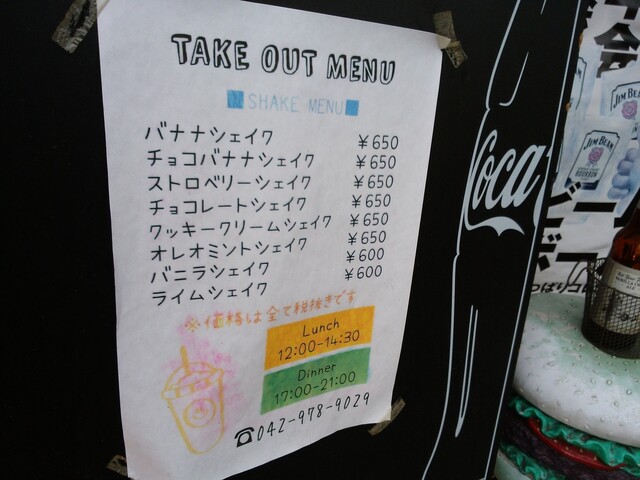 TAKE OUT MENU
SHAKE MENU
バナナシェイク ¥650
チョコバナナシェイク ¥650
ストロベリーシェイク ¥650
チョコレートシェイク ¥650
クッキークリームシェイク ¥650
オレオミントシェイク ¥650
バニラシェイク ¥600
ライムシェイク ¥600
※価格は全て税抜きです
Lunch
12:00-14:30
Dinner
17:00-21:00
☎042-978-9029
Coca
JIM BEAM
JIM BEAM